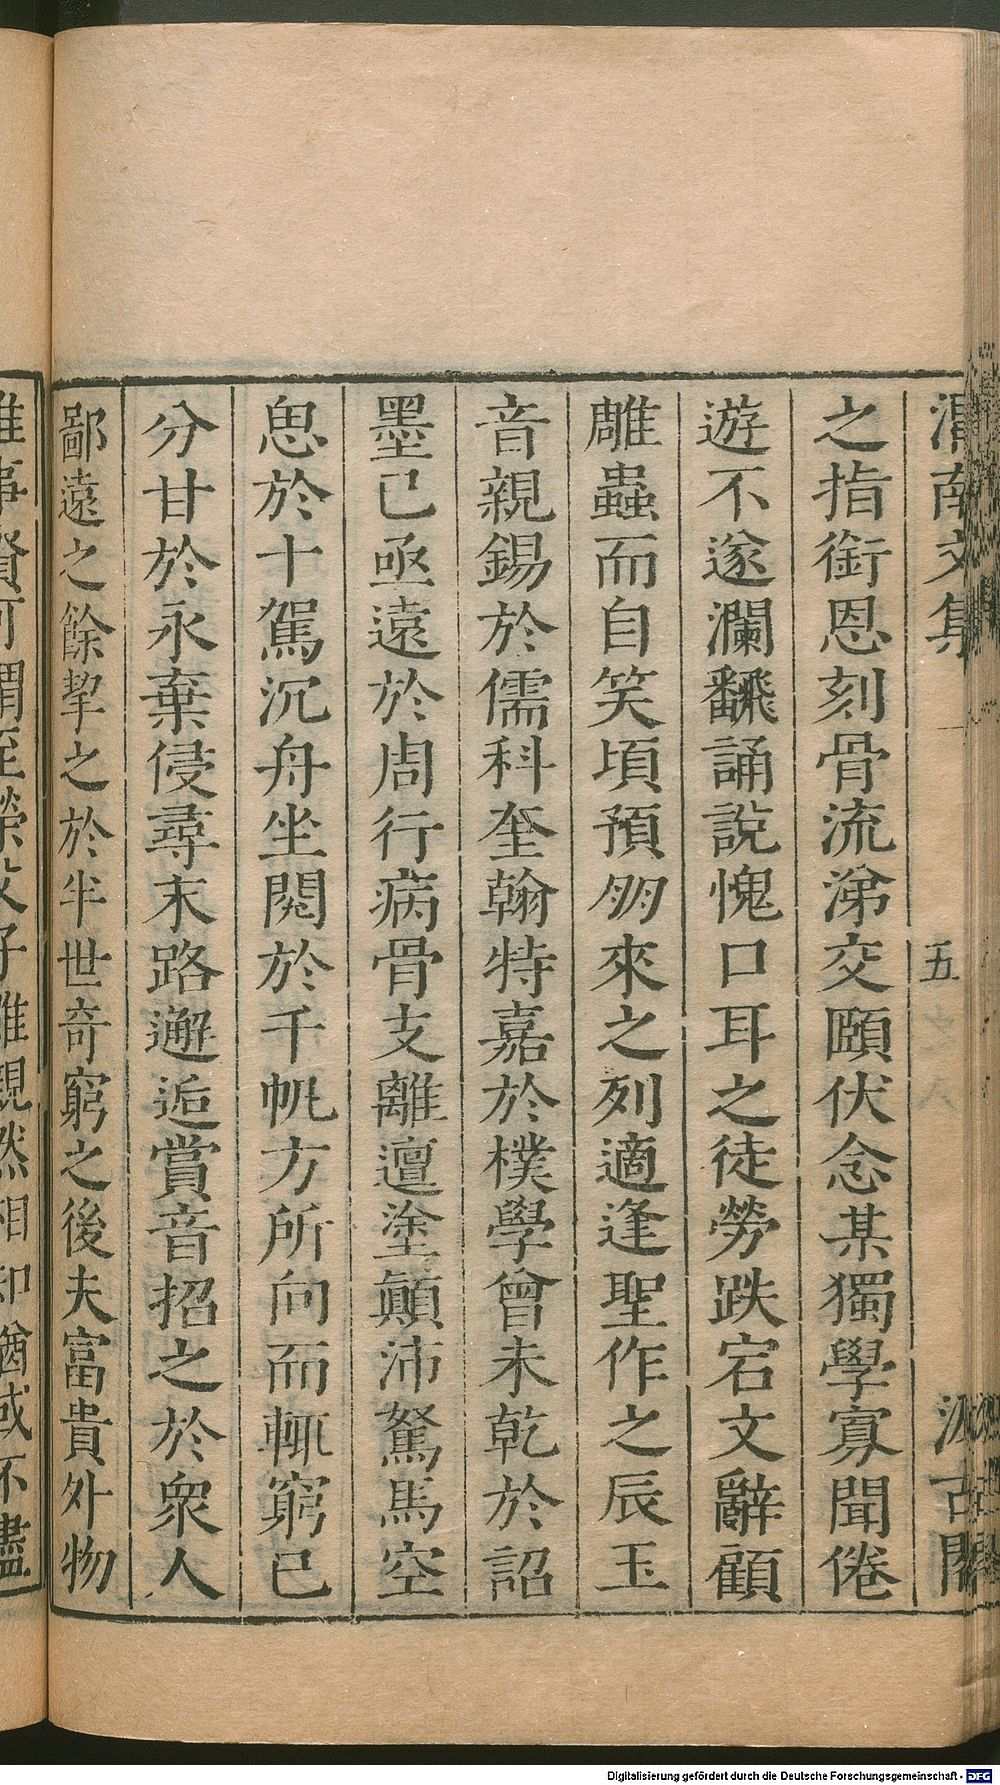 渭南文集
五
汲古閣
之指銜恩刻骨流涕交頤伏念某獨學寡聞倦
遊不遂瀾飜誦說愧口耳之徒勞跌宕文辭顧
雕蟲而自笑頃預明來之列適逢聖作之辰玉
音親錫於儒科奎翰特嘉於樸學曾未乾於詔
墨已亟遠於周行病骨支離邅塗顛沛駑馬空
思於十駕沉舟坐閱於千帆方所向而輒窮已
分甘於永棄侵尋末路邂逅賞音招之於衆人
鄙遠之餘挈之於半世奇窮之後夫富貴外物
Digitalisierung gefördert durch die Deutsche Forschungsgemeinschaft - DFG